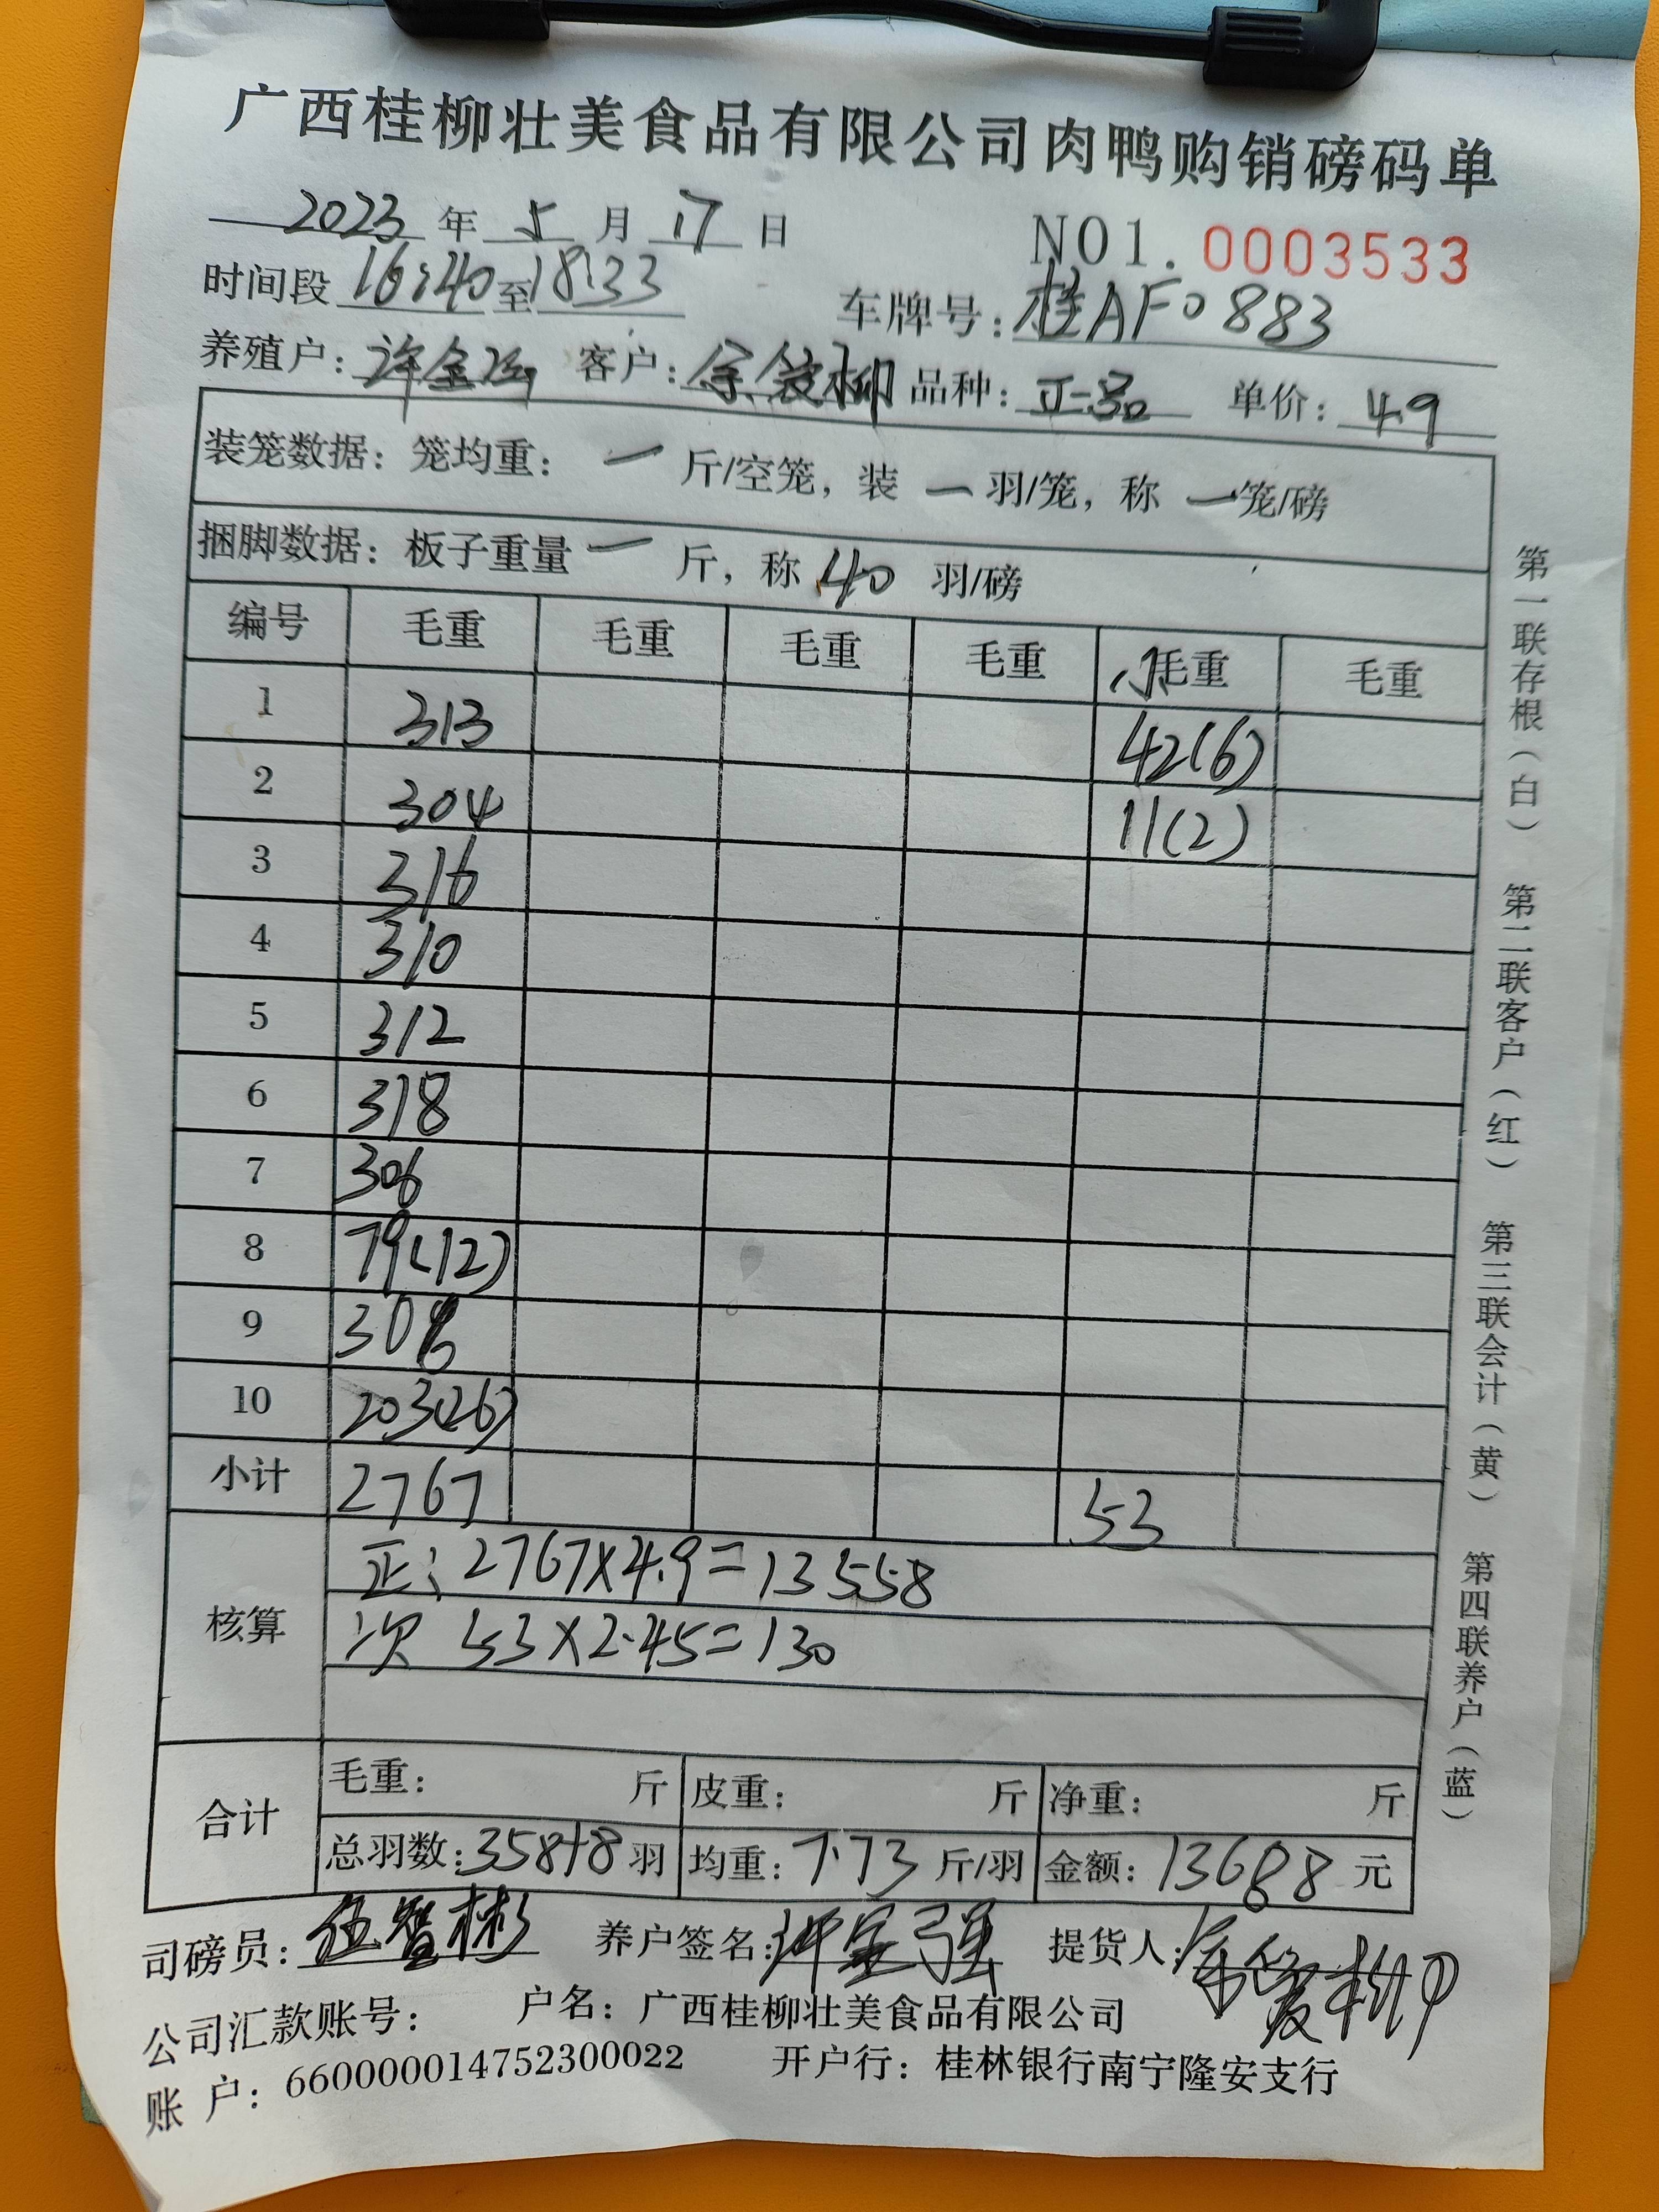 广西桂柳壮美食品有限公司肉鸭购销磅码单
2023 年 5 月 17 日 NO1. 0003533
时间段 16:40 至 18:33 车牌号: 桂AF0883
养殖户: 许宝强 客户: 余爱柳 品种: 正品 单价: 4.9
装笼数据: 笼均重: 一 斤/空笼, 装 一 羽/笼, 称 一 笼/磅
捆脚数据: 板子重量 一 斤, 称 40 羽/磅
编号 毛重 毛重 毛重 毛重 次毛重 毛重
1 313 42(6)
2 304 11(2)
3 316
4 310
5 312
6 318
7 306
8 79(12)
9 306
10 203(26)
小计 2767 53
核算 正: 2767×4.9=13558
次 53×2.45=130
合计 毛重: 斤 皮重: 斤 净重: 斤
总羽数: 358+8 羽 均重: 7.73 斤/羽 金额: 13688 元
司磅员: 伍智彬 养户签名: 许宝强 提货人: 余爱柳
公司汇款账号: 户名: 广西桂柳壮美食品有限公司
账 户: 660000014752300022 开户行: 桂林银行南宁隆安支行
第一联存根(白) 第二联客户(红) 第三联会计(黄) 第四联养户(蓝)